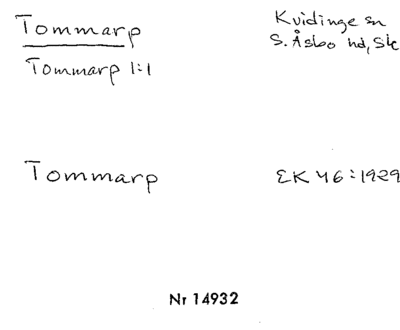 Tommarp
Kvidinge sn
S. Åsbo hd, Sk
Tommarp 1:1
Tommarp
EK 46:1929
Nr 14932